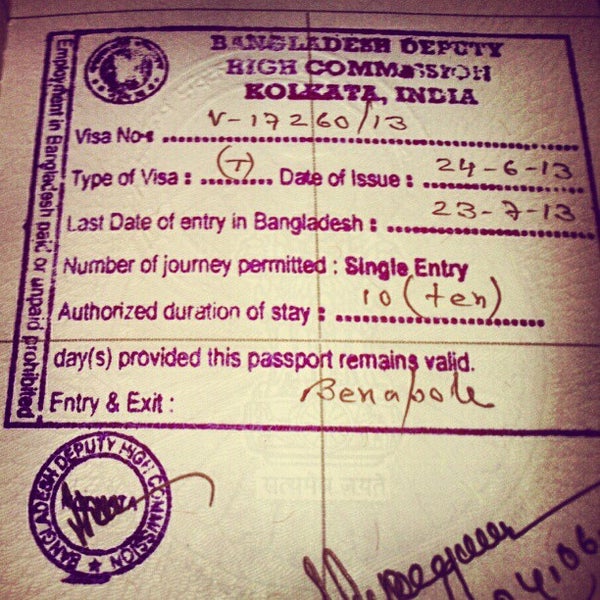 BANGLADESH DEPUTY
HIGH COMMISSION
KOLKATA, INDIA
Visa No: V-17260/13
Type of Visa : (T) Date of Issue : 24-6-13
Last Date of entry in Bangladesh : 23-7-13
Number of journey permitted : Single Entry
Authorized duration of stay : 10 (ten)
day(s) provided this passport remains valid.
Entry & Exit : Benapole
Employment in Bangladesh paid or unpaid prohibited
BANGLADESH DEPUTY HIGH COMMISSION
सत्यमेव जयते